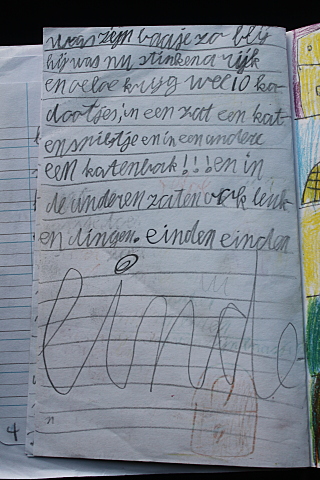 was zijn baasje zo blij
hij was nu stinkend rijk
en oeloe kryg wel 10 ka
dootjes, in een zat een kat
en snibtje en in een andere
een katenbak!!! en in
de anderen zaten ook leuk
en dingen. einden einden
einde
4